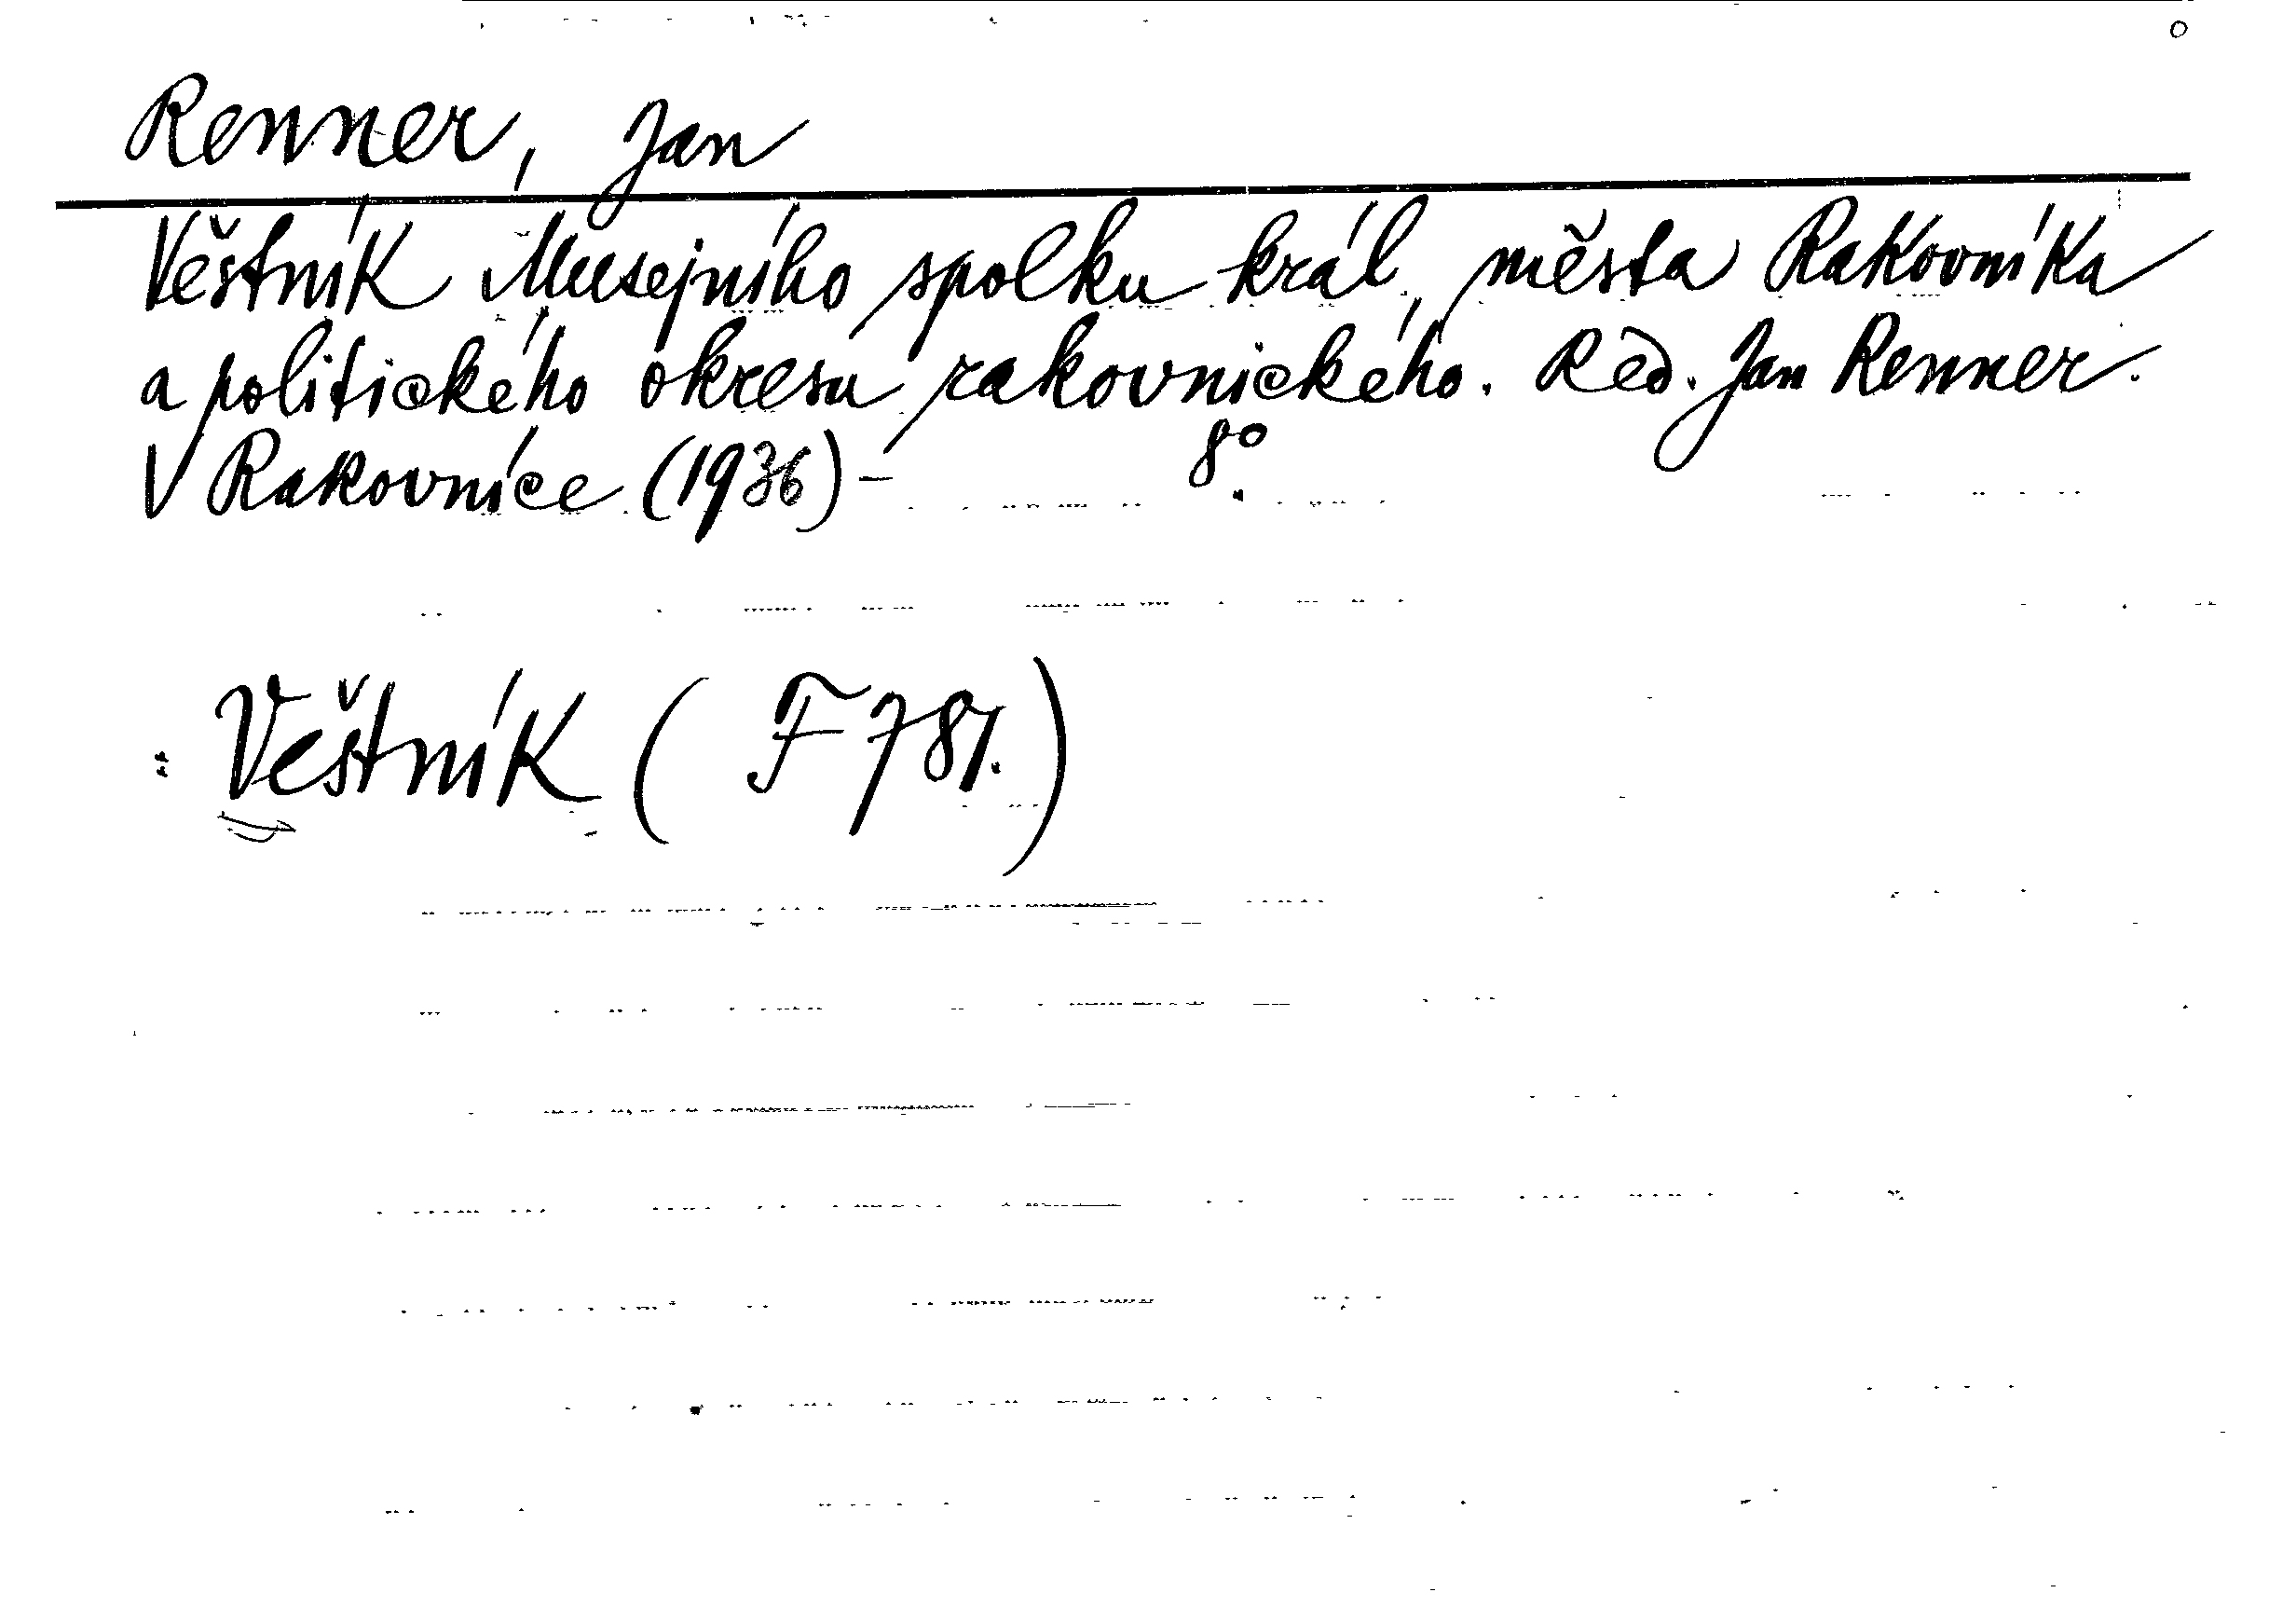 Renner, Jan
Věstník Musejního spolku král. města Rakovníka
a politického okresu rakovnického. Red. Jan Renner.
V Rakovníce (1936) - 8°.
: Věstník ( F 781.)